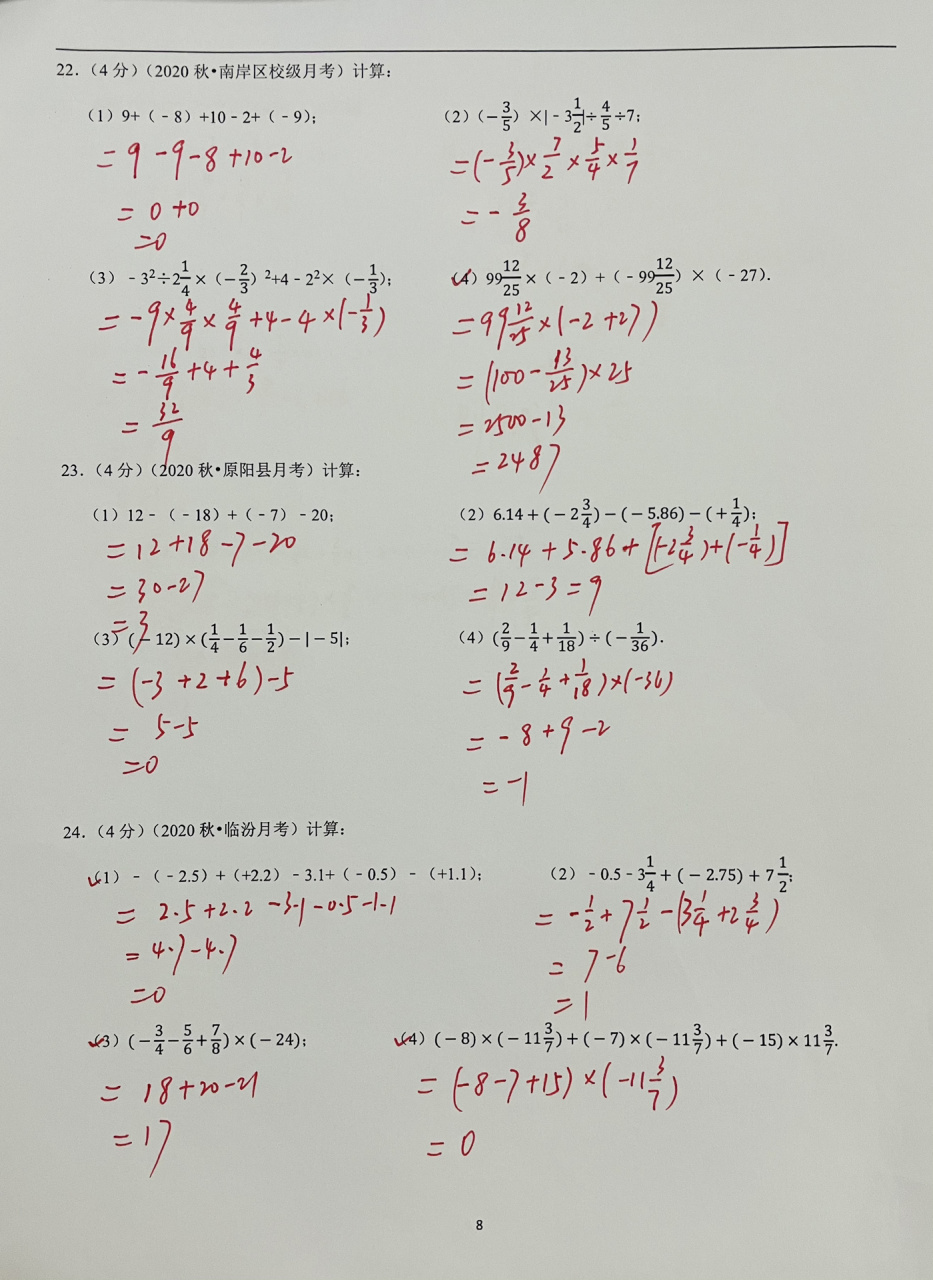 22.（4 分）（2020 秋•南岸区校级月考）计算：
（1）9+（﹣8）+10﹣2+（﹣9）；
= 9 -9 -8 +10 -2
= 0 +0
=0
（2）(−3/5) ×|﹣3 1/2|÷4/5÷7；
=(-3/5)×7/2×5/4×1/7
= -3/8
（3）﹣3²÷2 1/4×（−2/3）²+4﹣2²×（−1/3）；
= -9×4/9×4/9+4-4×(-1/3)
= -16/9+4+4/3
= 32/9
（4）99 12/25×（﹣2）+（﹣99 12/25）×（﹣27）.
=99 12/25×(-2+27)
= (100-13/25)×25
= 2500-13
= 2487
23.（4 分）（2020 秋•原阳县月考）计算：
（1）12﹣（﹣18）+（﹣7）﹣20；
= 12+18-7-20
= 30-27
= 3
（2）6.14+(−2 3/4)−(−5.86)−(+1/4)；
= 6.14+5.86+[(-2 3/4)+(-1/4)]
= 12-3=9
（3）(−12)×(1/4−1/6−1/2)−|−5|；
= (-3+2+6)-5
= 5-5
=0
（4）(2/9−1/4+1/18)÷(−1/36).
= (2/9-1/4+1/18)×(-36)
= -8+9-2
= -1
24.（4 分）（2020 秋•临汾月考）计算：
（1）﹣（﹣2.5）+（+2.2）﹣3.1+（﹣0.5）﹣（+1.1）；
= 2.5+2.2 -3.1-0.5-1.1
= 4.7-4.7
=0
（2）﹣0.5﹣3 1/4+(−2.75)+7 1/2；
= -1/2+7 1/2-(3 1/4+2 3/4)
= 7-6
= 1
（3）(−3/4−5/6+7/8)×(−24)；
= 18+20-21
= 17
（4）(−8)×(−11 3/7)+(−7)×(−11 3/7)+(−15)×11 3/7.
= (-8-7+15)×(-11 3/7)
= 0
8